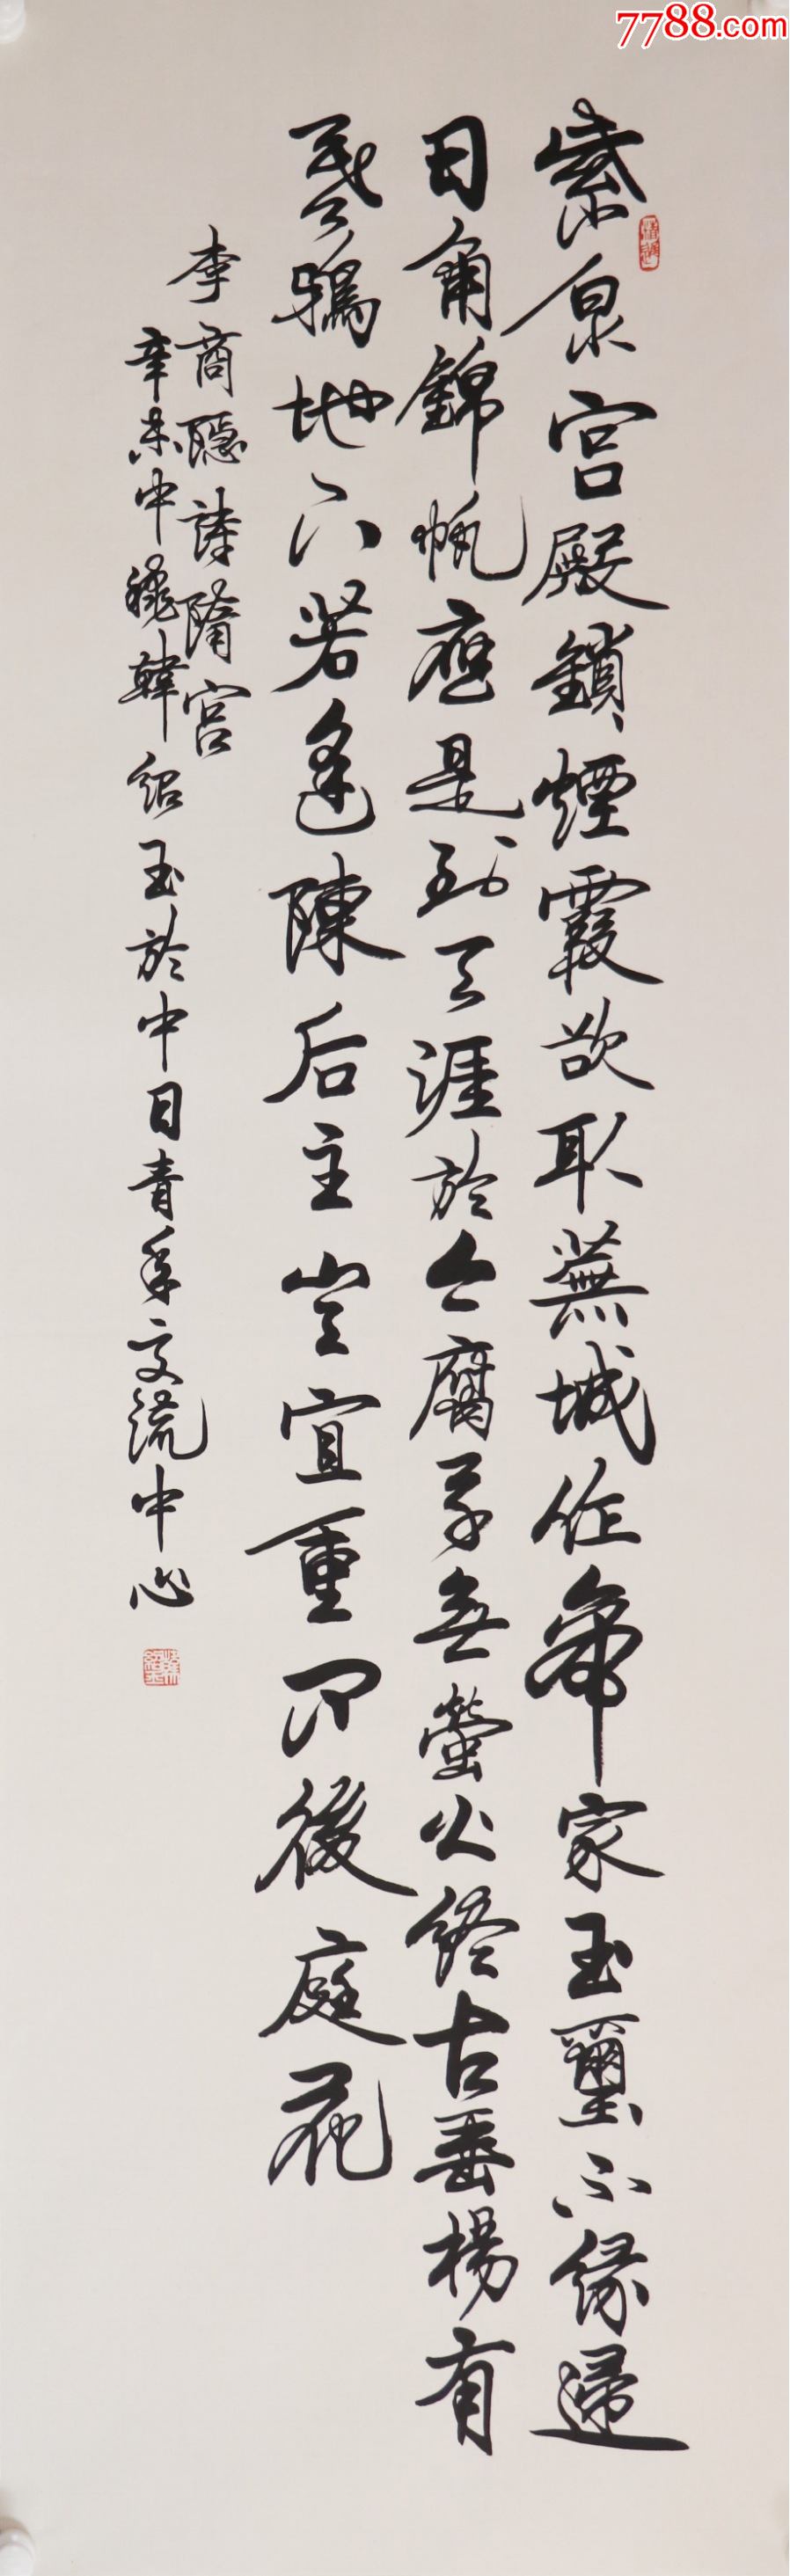 7788.com
紫泉宫殿鎖煙霞欲取蕪城作帝家玉璽不緣歸
日角錦帆應是到天涯於今腐草無螢火終古垂楊有
暮鴉地下若逢陳后主豈宜重問後庭花
李商隱詩隋宮
辛未中穐韓紹玉於中日青年交流中心